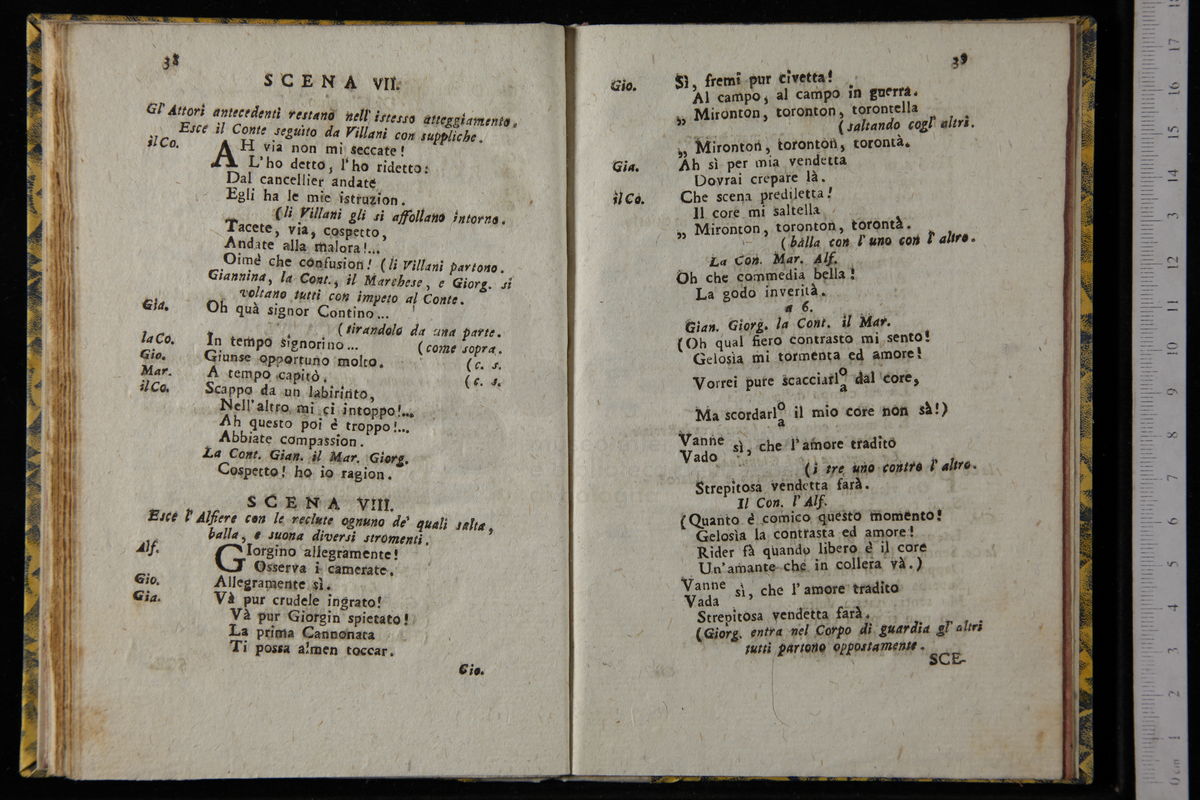 38
SCENA VII.
Gl' Attori antecedenti restano nell' istesso atteggiamento.
Esce il Conte seguito da Villani con suppliche.
il Co. AH via non mi seccate!
L'ho detto, l'ho ridetto:
Dal cancellier andate
Egli ha le mie istruzion.
(li Villani gli si affollano intorno.
Tacete, via, cospetto,
Andate alla malora!...
Oimè che confusion! (li Villani partono.
Giannina, la Cont., il Marchese, e Giorg. si
voltano tutti con impeto al Conte.
Gia. Oh quà signor Contino...
(tirandolo da una parte.
la Co. In tempo signorino... (come sopra.
Gio. Giunse opportuno molto. (c. s.
Mar. A tempo capitò. (c. s.
il Co. Scappo da un labirinto,
Nell'altro mi ci intoppo!...
Ah questo poi è troppo!...
Abbiate compassion.
La Cont. Gian. il Mar. Giorg.
Cospetto! ho io ragion.
SCENA VIII.
Esce l'Alfiere con le reclute ognuno de' quali salta,
balla, e suona diversi stromenti.
Alf. GIorgino allegramente!
Osserva i camerate.
Gio. Allegramente sì.
Gia. Và pur crudele ingrato!
Và pur Giorgin spietato!
La prima Cannonata
Ti possa almen toccar.
Gio.
39
Gio. Sì, fremi pur civetta!
Al campo, al campo in guerra.
„ Mironton, toronton, torontella
(saltando cogl' altri.
„ Mironton, toronton, torontà.
Gia. Ah sì per mia vendetta
Dovrai crepare là.
il Co. Che scena prediletta!
Il core mi saltella
„ Mironton, toronton, torontà.
(balla con l'uno con l'altro.
La Con. Mar. Alf.
Oh che commedia bella!
La godo inverità.
a 6.
Gian. Giorg. la Cont. il Mar.
(Oh qual fiero contrasto mi sento!
Gelosìa mi tormenta ed amore!
Vorrei pure scacciarl o a dal core,
Ma scordarl o a il mio core non sà!)
Vanne
Vado sì, che l'amore tradito
(i tre uno contro l'altro.
Strepitosa vendetta farà.
Il Con. l'Alf.
(Quanto è comico questo momento!
Gelosìa la contrasta ed amore!
Rider fà quando libero è il core
Un'amante che in collera và.)
Vanne
Vada sì, che l'amore tradito
Strepitosa vendetta farà.
(Giorg. entra nel Corpo di guardia gl' altri
tutti partono oppostamente.
SCE-